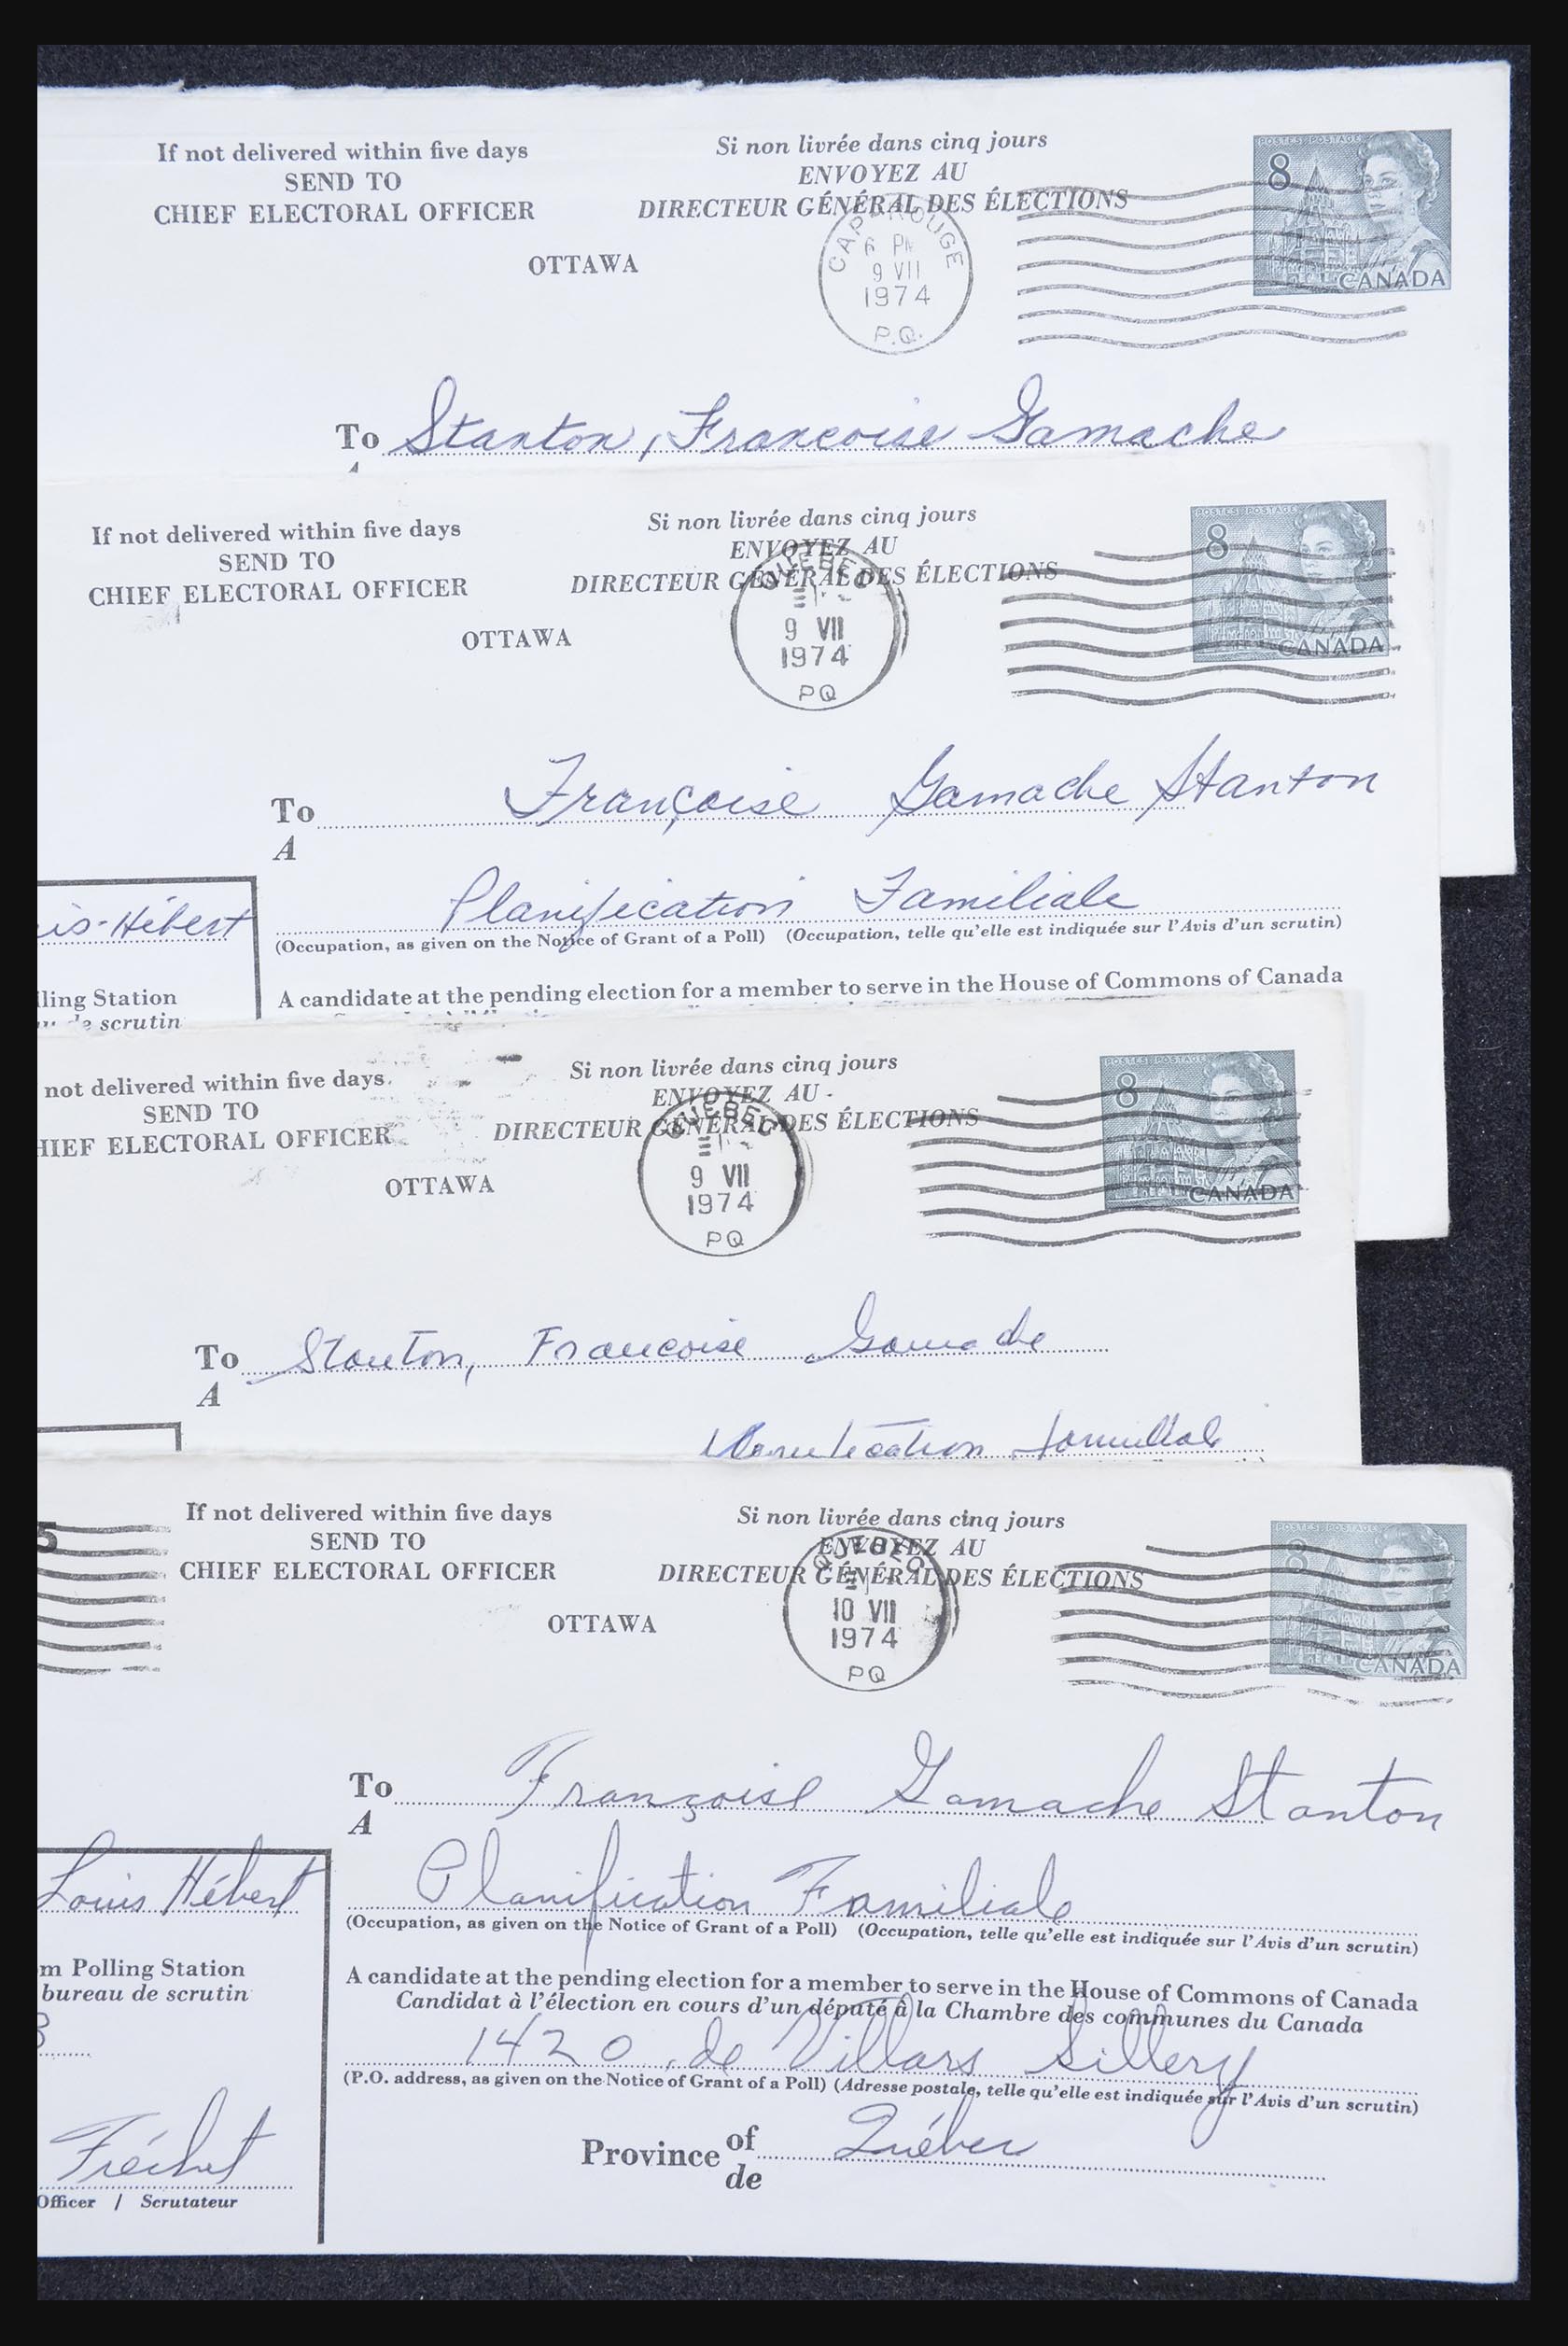 If not delivered within five days
SEND TO
CHIEF ELECTORAL OFFICER
Si non livrée dans cinq jours
ENVOYEZ AU
DIRECTEUR GÉNÉRAL DES ÉLECTIONS
OTTAWA
POSTES POSTAGE
8
CANADA
CAP-ROUGE
6 PM
9 VII
1974
P.Q.
To Stanton, Francoise Gamache
If not delivered within five days
SEND TO
CHIEF ELECTORAL OFFICER
Si non livrée dans cinq jours
ENVOYEZ AU
DIRECTEUR GÉNÉRAL DES ÉLECTIONS
OTTAWA
POSTES POSTAGE
8
CANADA
QUEBEC
9 VII
1974
PQ
To Françoise Gamache Stanton
A
Planification Familiale
is-Hébert
(Occupation, as given on the Notice of Grant of a Poll) (Occupation, telle qu'elle est indiquée sur l'Avis d'un scrutin)
lling Station
de scrutin
A candidate at the pending election for a member to serve in the House of Commons of Canada
not delivered within five days
SEND TO
HIEF ELECTORAL OFFICER
Si non livrée dans cinq jours
ENVOYEZ AU
DIRECTEUR GÉNÉRAL DES ÉLECTIONS
OTTAWA
POSTES POSTAGE
8
CANADA
QUEBEC
9 VII
1974
PQ
To Stanton, Francoise Gamache
A
5
If not delivered within five days
SEND TO
CHIEF ELECTORAL OFFICER
Si non livrée dans cinq jours
ENVOYEZ AU
DIRECTEUR GÉNÉRAL DES ÉLECTIONS
OTTAWA
POSTES POSTAGE
8
CANADA
QUEBEC
10 VII
1974
PQ
To Françoise Gamache Stanton
A
Planification Familiale
Louis Hébert
(Occupation, as given on the Notice of Grant of a Poll) (Occupation, telle qu'elle est indiquée sur l'Avis d'un scrutin)
m Polling Station
bureau de scrutin
3
A candidate at the pending election for a member to serve in the House of Commons of Canada
Candidat à l'élection en cours d'un député à la Chambre des communes du Canada
1420, de Villars Sillery
(P.O. address, as given on the Notice of Grant of a Poll) (Adresse postale, telle qu'elle est indiquée sur l'Avis d'un scrutin)
Province of Québec
de
Fréchet
Officer / Scrutateur